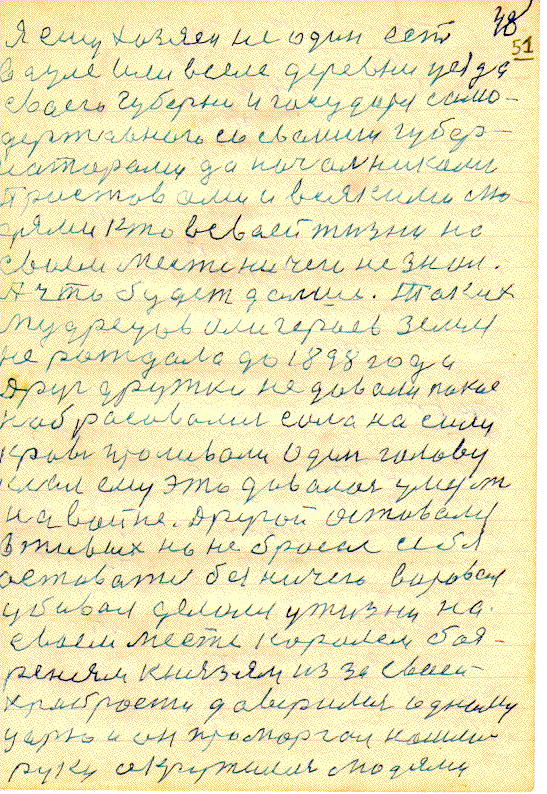 48
51
Я ему хозяен не один сет
в ауле или вселе деревни уезда
своего губерни и государя само-
державного со своими губер-
наторами да начальниками
приставами и всякими лю
дями кто всваей жизни на
своем месте ничего не знал.
А что будет дальше. Таких
мудрецов или героев земля
не рождала до 1898 года
друг дружки не давали покое
набрасовалися сила на силу
кровь проливали один голову
клал ему это давалося умерт
на войне. Другой оставался
вживых но не бросал себя
оставати без ничего воровал
убивал делали ужизни на
своем месте королем боя-
реням князям из за своей
храбрости доверился одному
царю и он проморгал нашли
руку окружился людями